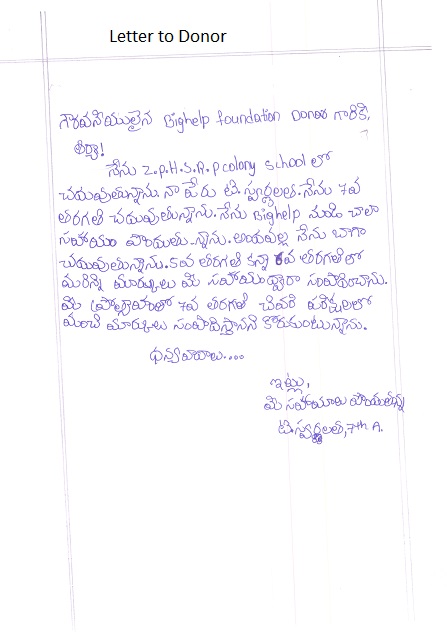 Letter to Donor
గౌరవనీయులైన Bighelp foundation Donor గారికి,
ఆర్యా!
నేను Z.P.H.S.R.P colony school లో
చదువుతున్నాను. నా పేరు టి. స్వర్ణలత. నేను 7వ
తరగతి చదువుతున్నాను. నేను Bighelp నుండి చాలా
సహాయం పొందుతున్నాను. అందువల్ల నేను బాగా
చదువుతున్నాను. 5వ తరగతి కన్నా 6వ తరగతిలో
మరిన్ని మార్కులు మీ సహాయం ద్వారా సంపాదించాను.
మీ ప్రోత్సాహంతో 7వ తరగతి చివరి పరీక్షలలో
మంచి మార్కులు సంపాదిస్తానని కోరుకుంటున్నాను.
ధన్యవాదాలు....
ఇట్లు,
మీ సహాయాలు పొందుతున్న
టి. స్వర్ణలత, 7th A.